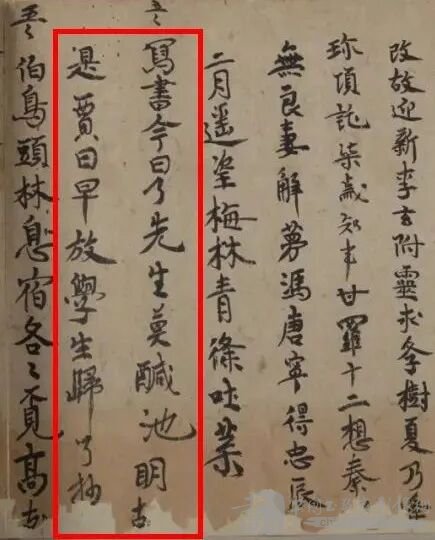 改故迎新李玄附靈求冬樹夏乃
珎項託柒歲知事甘羅十二想秦
無良妻解夢馮唐寧得忠辰
二月遥望梅林青條吐葉
寫書今日了先生莫醎池明
是賈日早放學生歸了抄
伯鳥頭林息宿各〻覓高